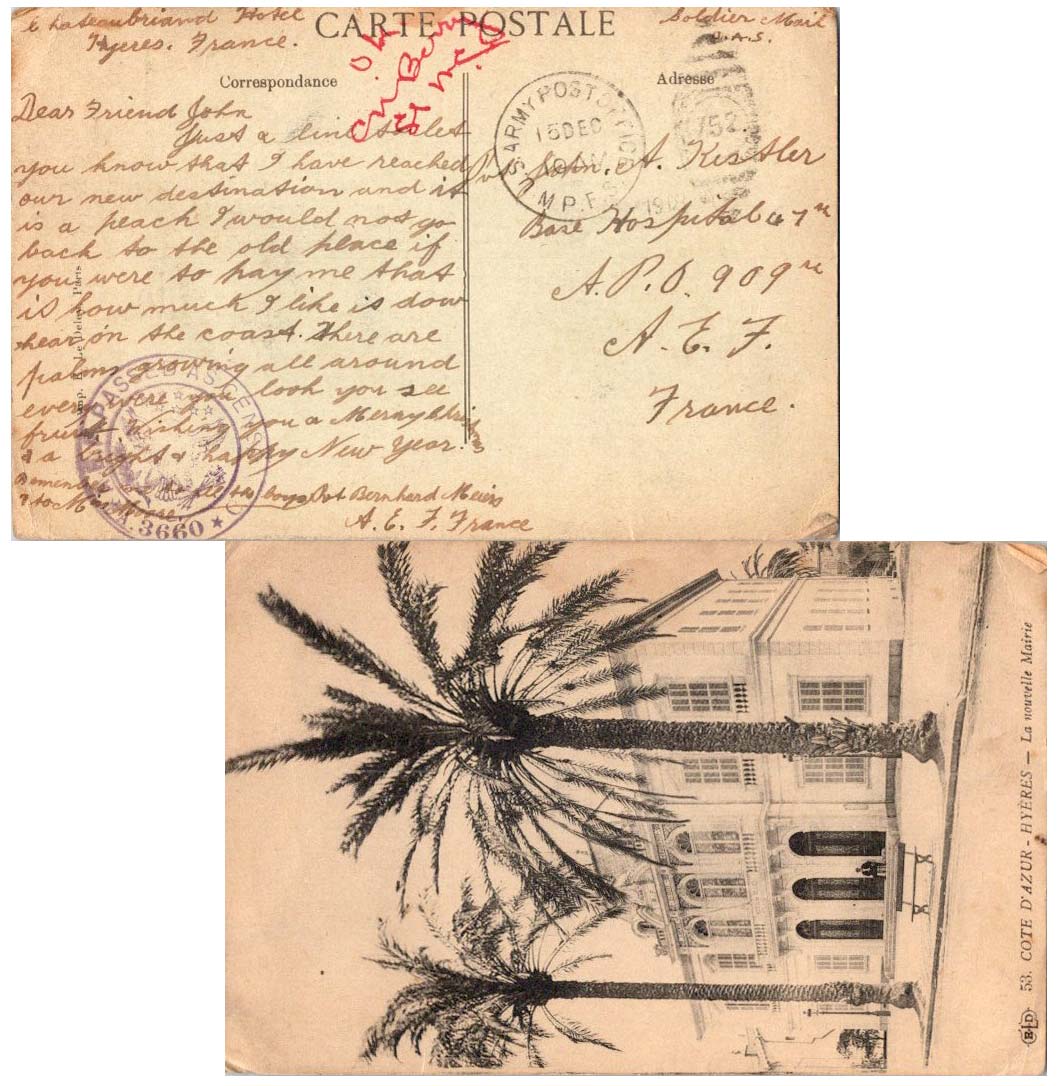 Chateaubriand Hotel
Hyeres. France.
CARTE POSTALE
Soldier Mail
U.A.S.
O.K
Correspondance
Adresse
Dear Friend John
Just a line to let
you know that I have reached
our new destination and it
is a peach I would not go
back to the old place if
you were to pay me that
is how much I like is dow
hear on the coast. There are
palms growing all around
every were you look you see
fruit Wishing you a Merry
& a bright & happy New Year.
all the boys Pvt Bernhard Meiers
A. E. F. France
Imp. E. Le Deley, Paris
PASSED AS CENSORED
A.E.F.
3660
U.S. ARMY POST OFFICE
15 DEC
M.P.E.S.
752
1918
Pvt John. A. Kistler
Base Hospital 47th
A.P.O. 909th
A. E. F.
France.
ELD 53. COTE D'AZUR - HYÈRES — La nouvelle Mairie